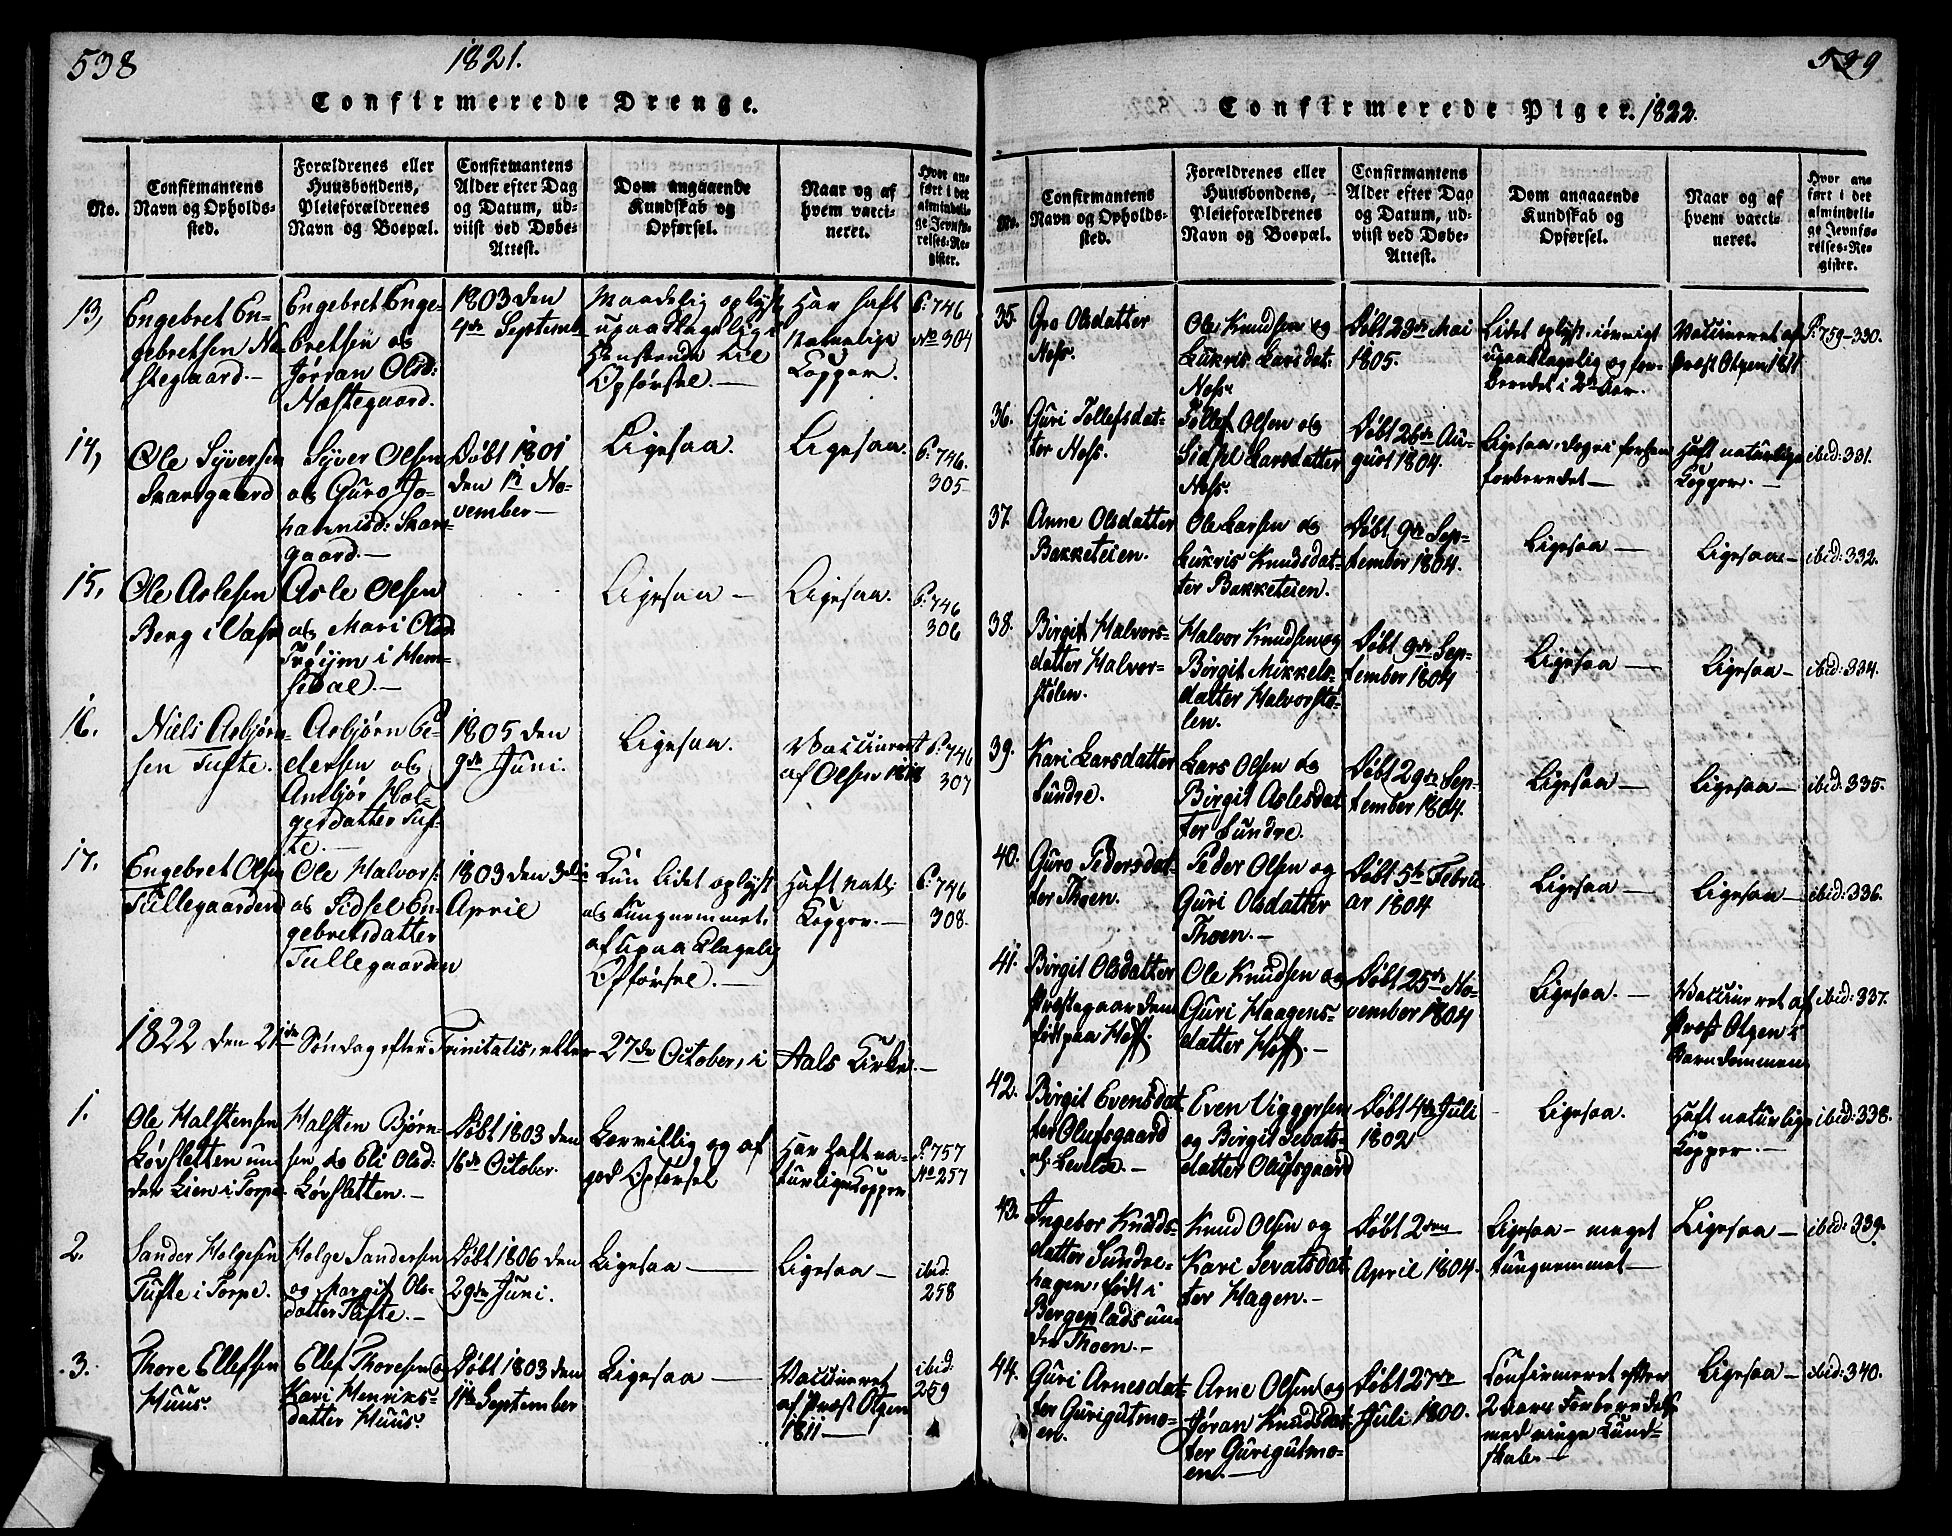 538
1821.
Confirmerede Drenge.
No.
Confirmantens
Navn og Opholds-
sted.
Forældrenes eller
Huusbondens,
Pleieforældrenes
Navn og Boepæl.
Confirmantens
Alder efter Dag
og Datum, ud-
viist ved Døbe-
Attest.
Dom angaaende
Kundskab og
Opførsel.
Naar og af
hvem vacci-
neret.
Hvor an-
ført i det
almindeli-
ge Jevnfø-
relses-Re-
gister.
13,
Engebret En-
gebretsen Næ
stegaard.-
Engebret Enge-
bretsen og
Jøran Olsd:
Næstegaard.
1803 den
4de Septemb
Maadelig oplyst
upaaklagelig i
Henseende til
Opførsel.-
Har haft
Naturlige
Kopper.
P. 746
No 304
14,
Ole Syversen
Skarsgaard
Syver Olsen
og Guro Jo-
hannisd: Skars-
gaard.-
Døbt 1801
den 1ste No-
vember-
Ligesaa
Ligesaa.
P. 746.
305
15,
Ole Aslesen
Berg i Vats
Asle Olsen
og Mari Olsd
Trøym i Hem-
sedal.-
Ligesaa -
Ligesaa.
P. 746
306
16.
Niels Asbjørn-
sen Tufte.
Asbjørn Pe-
dersen og
Ambjør Hol-
gersdatter Tuf-
te.-
1805 den
9de Juni.
Ligesaa.
Vaccineret
af Olsen 1818
P. 746
307
17.
Engebret Olsen
Tullegaarden
Ole Halvors:
og Sidsel En-
gebretsdatter
Tullegaarden
1803 den 3die
April
Kun lidet oplyst
og tungnemmet,
af upaaklagelig
Opførsel.-
Haft natl:
Kopper.-
P. 746
308.
1822 den 21de Søndag efter Trinitatis, eller 27de October, i Aals Kirke.-
1.
Ole Halstensen
Løvsletten un-
der Lien i Torpe
Halsten Bjørn-
sen og Eli Olsd:
Løvsletten.-
Døbt 1803 den
16de October.
Lærvillig og af
god Opførsel
Har haft na-
turlige Kopper
P. 757
No 257
2.
Sander Holgesen
Tufte i Torpe.
Holge Sandersen
og Margit Ols-
datter Tufte.-
Døbt 1806 den
29de Juni.
Ligesaa -
Ligesaa -
ibid:
258
3.
Thore Ellefsen
Huus.
Ellef Thoresen og
Kari Henriks-
datter Huus.
Døbt 1803 den
11te September
Ligesaa -
Vaccineret
af Præst Olsen
1811 -
ibid:
259
539
Confirmerede Piger. 1822.
No.
Confirmantens
Navn og Opholds-
sted.
Forældrenes eller
Huusbondens,
Pleieforældrenes
Navn og Boepæl.
Confirmantens
Alder efter Dag
og Datum, ud-
viist ved Døbe-
Attest.
Dom angaaende
Kundskab og
Opførsel.
Naar og af
hvem vacci-
neret.
Hvor an-
ført i det
almindeli-
ge Jevnfø-
relses-Re-
gister.
35.
Gro Olsdatter
Ness.
Ole Knudsen og
Lukris Larsdat:
Ness.
Døbt 23de Mai
1805.
Lidet oplyst, iøvrigt
upaaklagelig og for-
beredet i 2de Aar.
Vaccineret af
Præst Olsen 1811
P. 759-330.
36.
Guri Tollefsdat-
ter Ness.
Tollef Olsen og
Sidsel Larsdatter
Ness.
Døbt 26de Au-
gust 1804.
Ligesaa,
forberedet -
Haft naturlige
Kopper.-
ibid: 331.
37.
Anne Olsdatter
Bakketeien.
Ole Larsen og
Lukris Knudsdat-
ter Bakketeien.
Døbt 9de Sep-
tember 1804.
Ligesaa -
Ligesaa -
ibid: 332.
38.
Birgit Halvors-
datter Halvor-
stølen.
Halvor Knudsen og
Birgit Mikkels-
datter Halvorstø-
len.
Døbt 9de Sep-
tember 1804
Ligesaa -
Ligesaa -
ibid: 334.
39.
Kari Larsdatter
Sundre.
Lars Olsen og
Birgit Aslesdat
ter Sundre.
Døbt 29de Sep-
tember 1804.
Ligesaa -
Ligesaa -
ibid: 335.
40.
Guro Pedersdat-
ter Thoen.
Peder Olsen og
Guri Olsdatter
Thoen.-
Døbt 5te Febru-
ar 1804
Ligesaa -
Ligesaa -
ibid: 336.
41.
Birgit Olsdatter
Præstegaarden
født paa Hoff.
Ole Knudsen og
Guri Haagens-
datter Hoff.-
Døbt 25de No-
vember 1804
Ligesaa.-
Vaccineret af
Præst Olsen i
Barndommen
ibid: 337.
42.
Birgit Evensdat-
ter Olufsgaard
Even Viggersen
og Birgit Sevats-
datter Olufsgaard
Døbt 4de Juli
1802
Ligesaa.
Haft naturlige
Kopper.-
ibid: 338.
43.
Ingebor Knuds-
datter Sundre-
hagen, født i
Bergenlads un-
der Thoen.-
Knud Olsen og
Kari Sevatsdat
ter Hagen.-
Døbt 2den
April 1804.
Ligesaa - meget
tungnemmet -
Ligesaa -
ibid: 339.
44.
Guri Arnesdat-
ter Gurigutmo-
en.
Arne Olsen og
Jøran Knudsdat-
ter Gurigutmo-
en.-
Døbt 27de
Juli 1800.
Confirmeret efter
2 aars Forberedelse
med ringe Kund-
skab.-
Ligesaa -
ibid: 340.